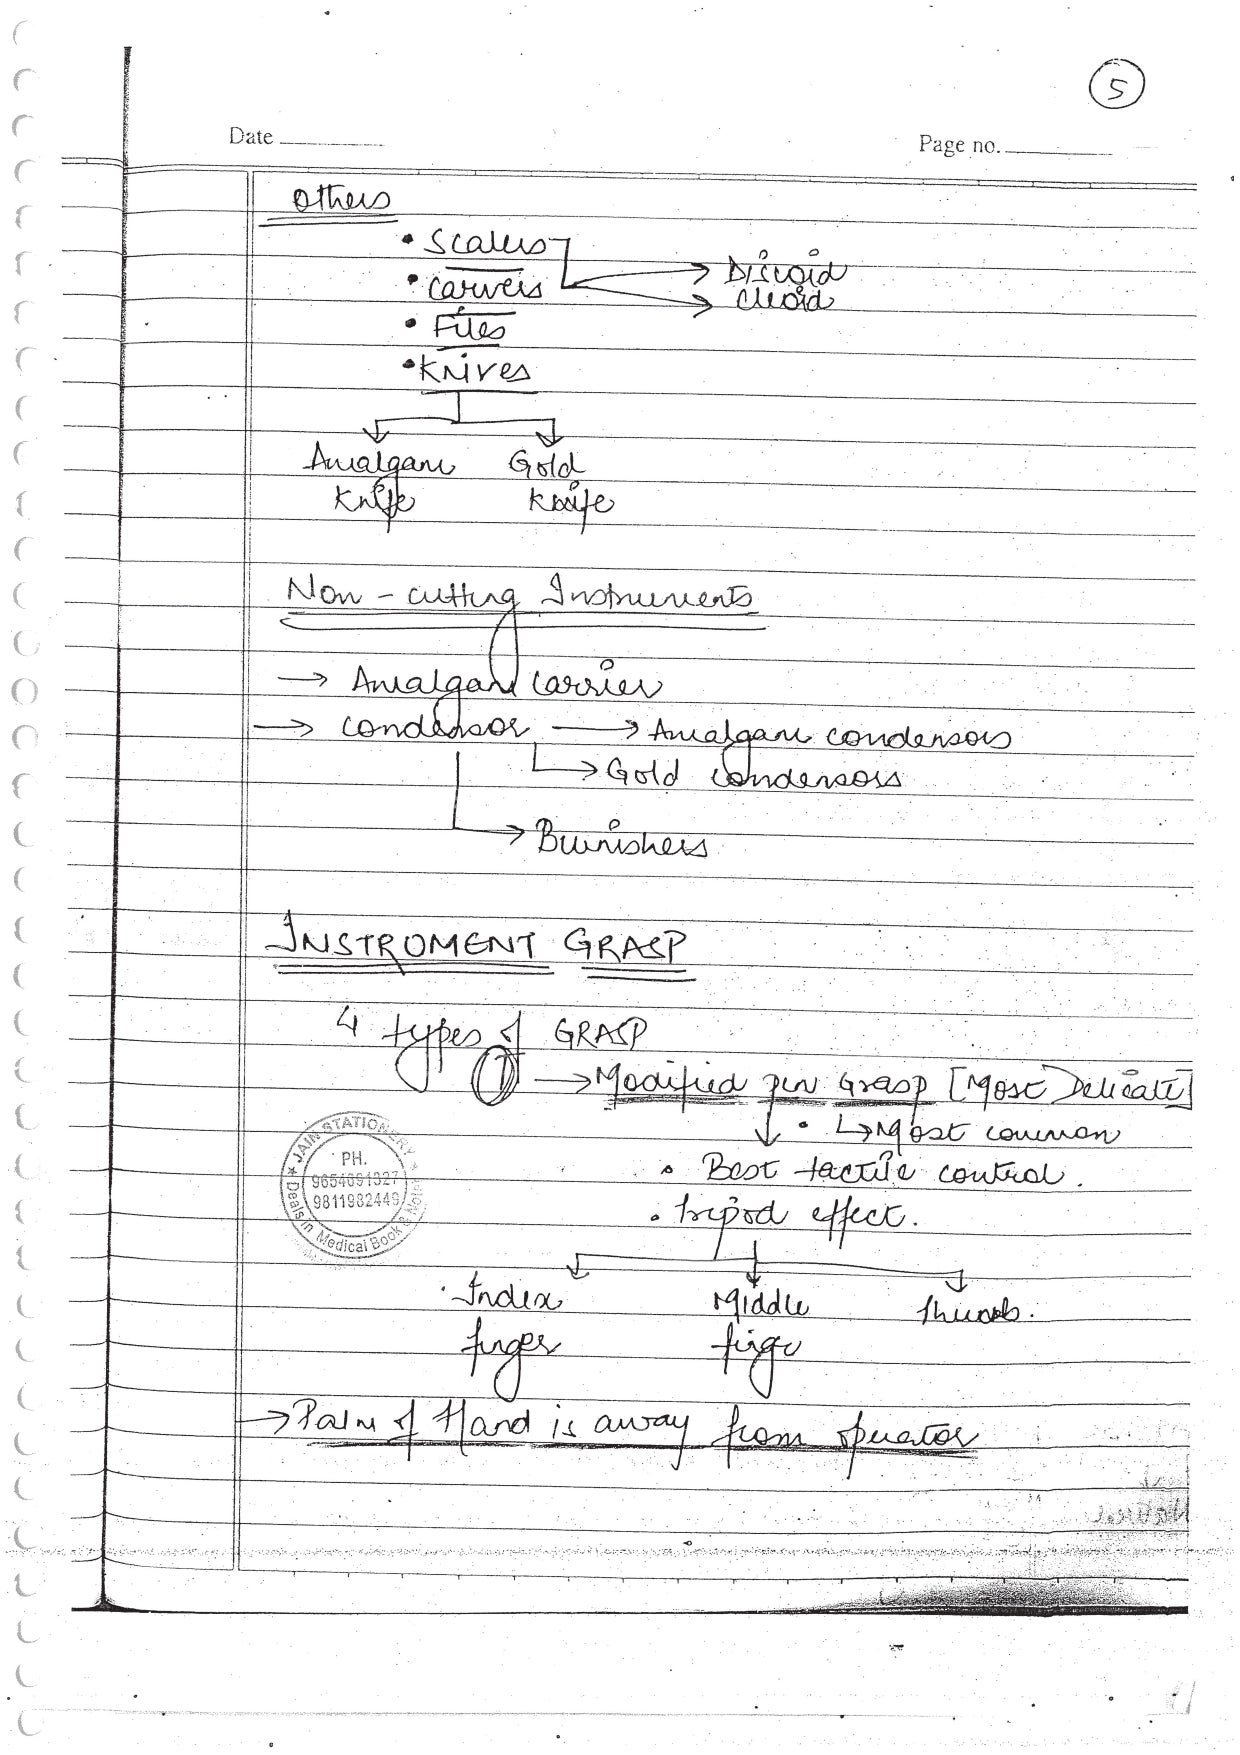 5
Date
Page no.
Others
• Scalers
→ Discoid
• Carvers
→ Cleoid
• Files
• Knives
Amalgam Gold
Knife Knife
Non - cutting Instruments
→ Amalgam Carrier
→ Condensor → Amalgam condensors
→ Gold condensors
→ Burnishers
INSTROMENT GRASP
4 types of GRASP
① → Modified pen Grasp [Most Delicate]
• ↳ Most common
• Best tactile control.
• tripod effect.
Index Middle thumb.
finger finger
→ Palm of Hand is away from operator
JAIN STATIONERY
PH.
9654691327
9811982449
Deals in Medical Book & Notes